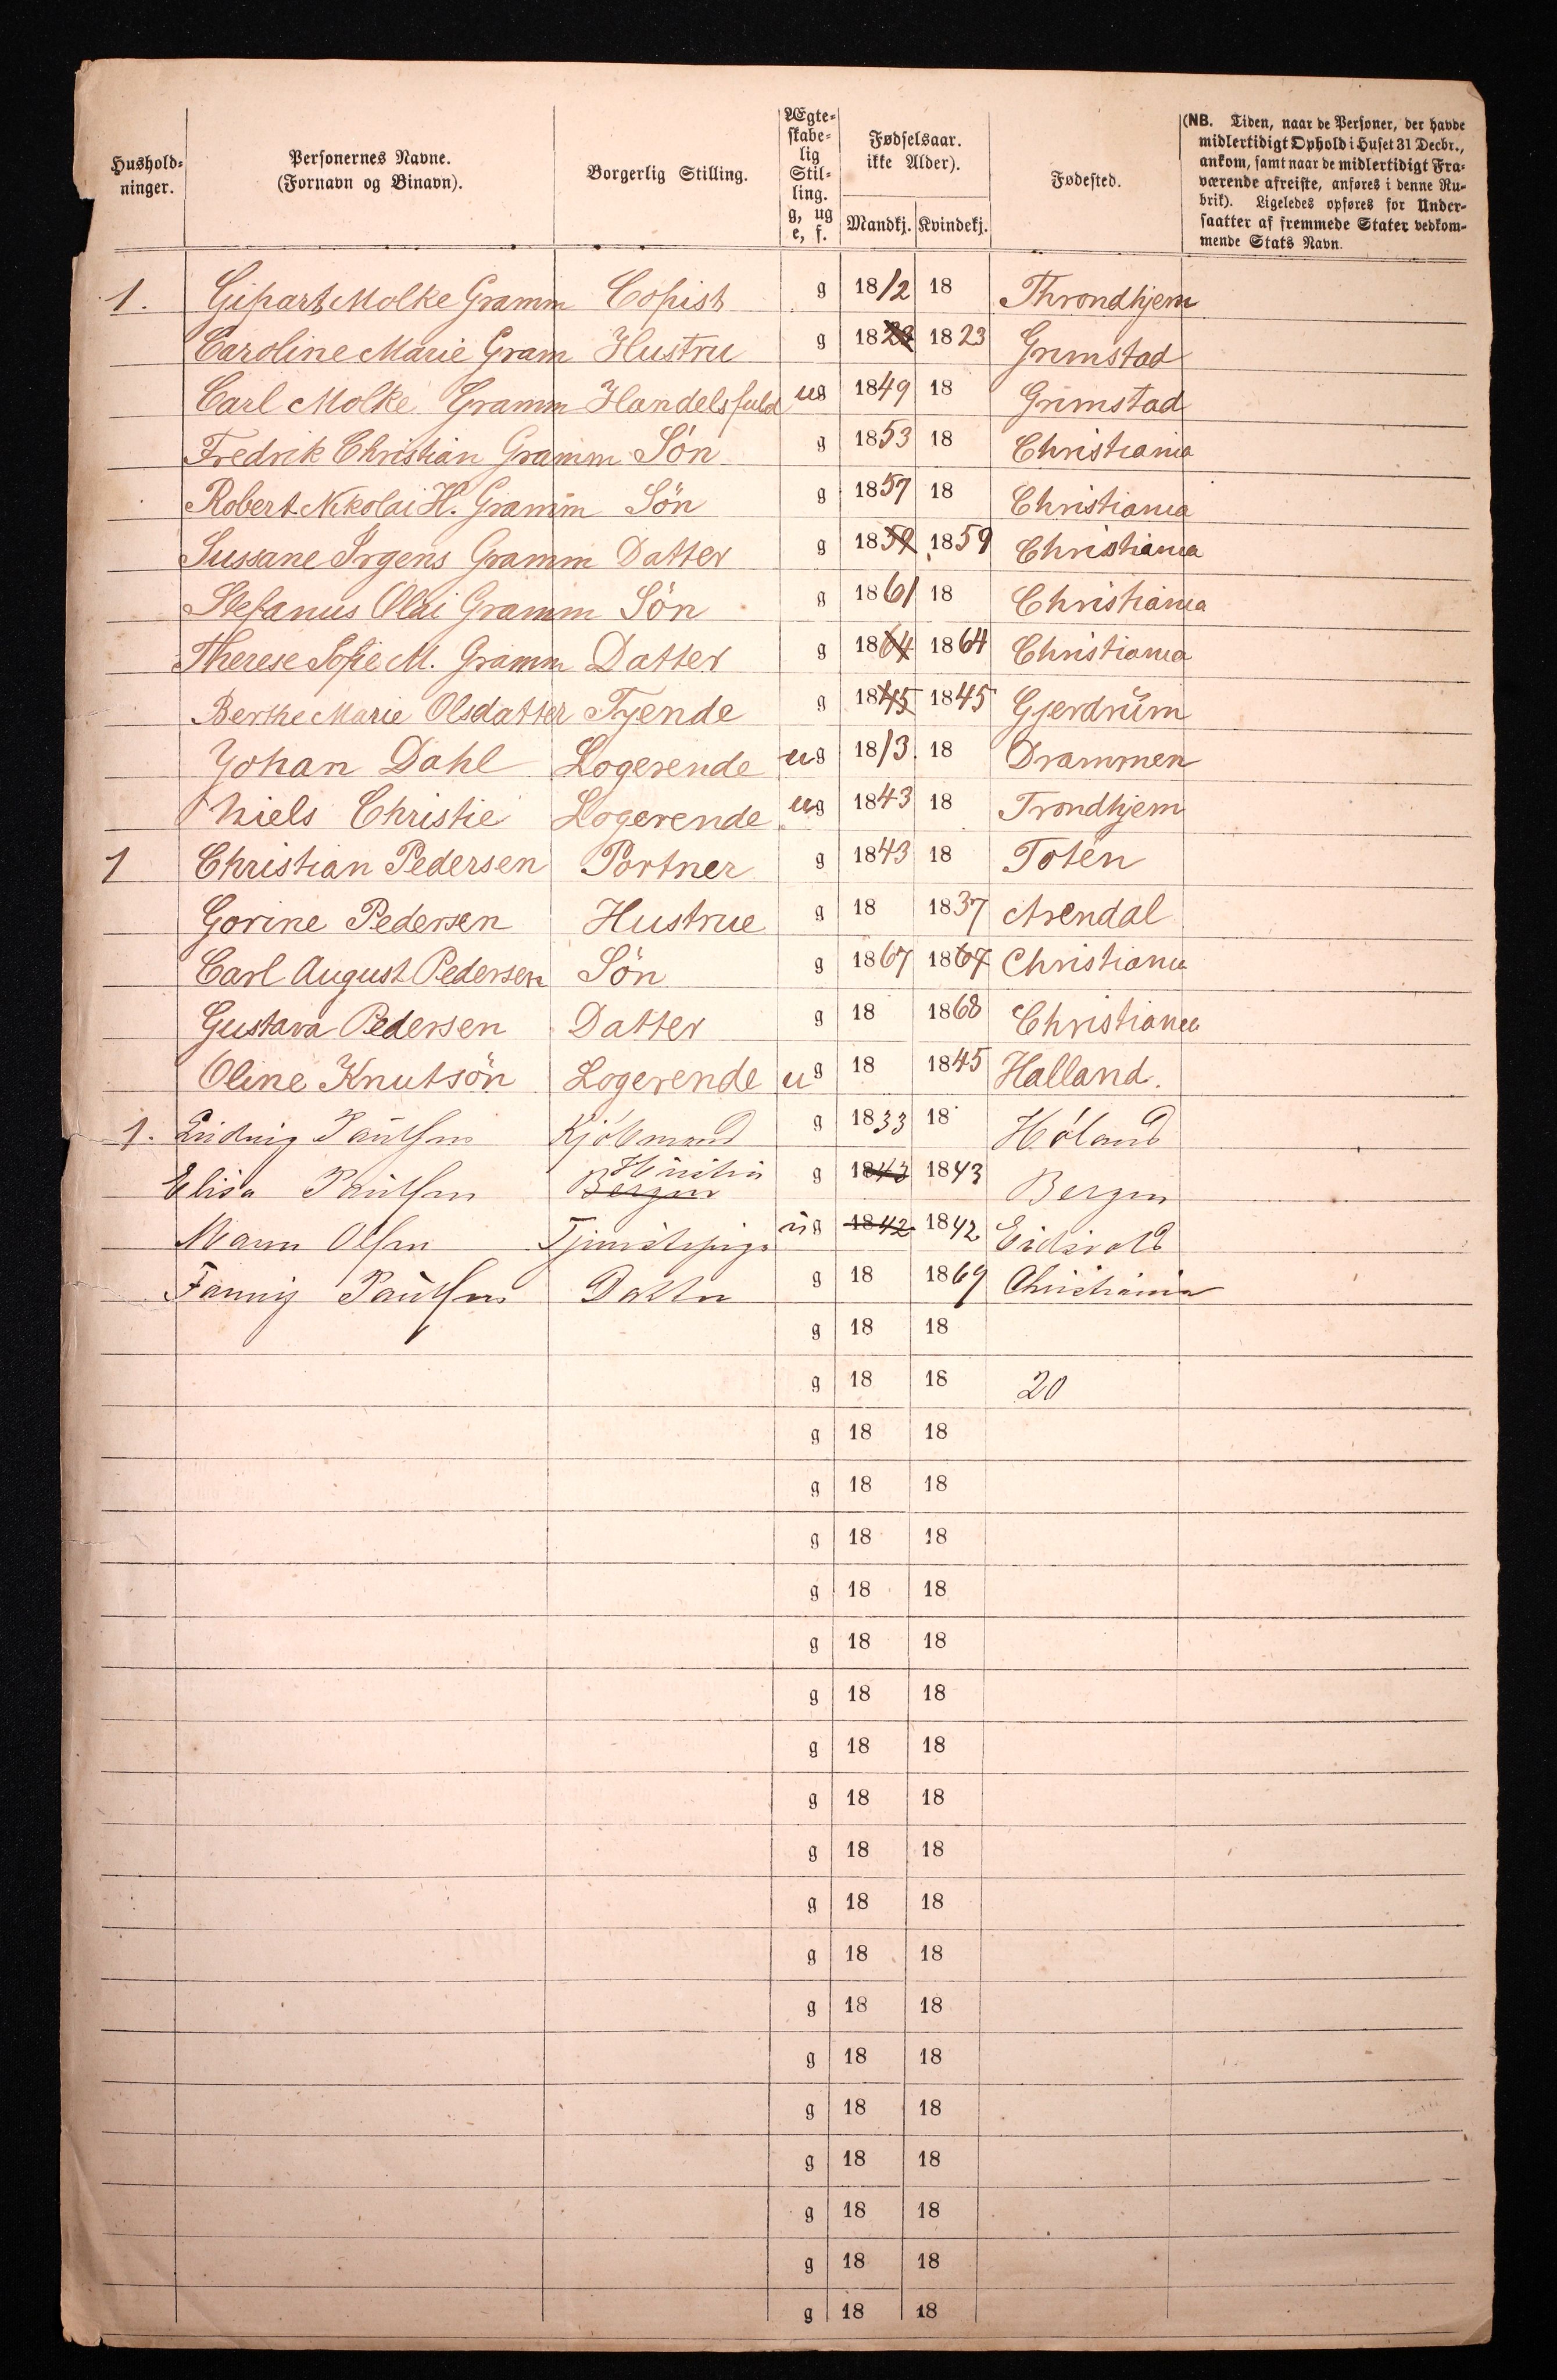 Hushold-
ninger.
Personernes Navne.
(Fornavn og Binavn).
Borgerlig Stilling.
Ægte-
skabe-
lig
Stil-
ling.
g, ug
e, f.
Fødselsaar.
ikke Alder).
Mandkj. Kvindekj.
Fødested.
(NB. Tiden, naar de Personer, der havde
midlertidigt Ophold i Huset 31 Decbr.,
ankom, samt naar de midlertidigt Fra-
værende afreiste, anføres i denne Ru-
brik). Ligeledes opføres for Under-
saatter af fremmede Stater vedkom-
mende Stats Navn.
1. Molke Gramm Copist g 1812 18 Throndhjem
Caroline Marie Gram Hustru g 1823 1823 Grimstad
Carl Molke Gramm Handelsfuld ug 1849 18 Grimstad
Fredrik Christian Gramm Sön g 1853 18 Christiania
Robert Nikolai H. Gramm Sön g 1857 18 Christiania
Sussane Irgens Gramm Datter g 1859 1859 Christiania
Stefanus Olai Gramm Sön g 1861 18 Christiania
Therese Sofie M. Gramm Datter g 1864 1864 Christiania
Berthe Marie Olsdatter Tjende g 1845 1845 Gjerdrŭm
Johan Dahl Logerende ug 1813. 18 Drammen
Niels Christie Logerende ug 1843 18 Trondhjem
1 Christian Pedersen Portner g 1843 18 Toten
Gorine Pedersen Hustrue g 18 1837 Arendal
Carl August Pedersen Sön g 1867 1867 Christiania
Gustava Pedersen Datter g 18 1868 Christiania
Oline Knutsön Logerende ug 18 1845 Halland.
1. Ludvig Paŭlsen Kjöbmand g 1833 18 Höland
Elisa Paŭlsen Bergen Hŭstrŭ g 1843 1843 Bergen
Maren Olsen Tjenestepige ŭg 1842 1842 Eidsvold
Fanny Paŭlsen Datter g 18 1869 Christiania
g 18 18
g 18 18 20
g 18 18
g 18 18
g 18 18
g 18 18
g 18 18
g 18 18
g 18 18
g 18 18
g 18 18
g 18 18
g 18 18
g 18 18
g 18 18
g 18 18
g 18 18
g 18 18
g 18 18
g 18 18